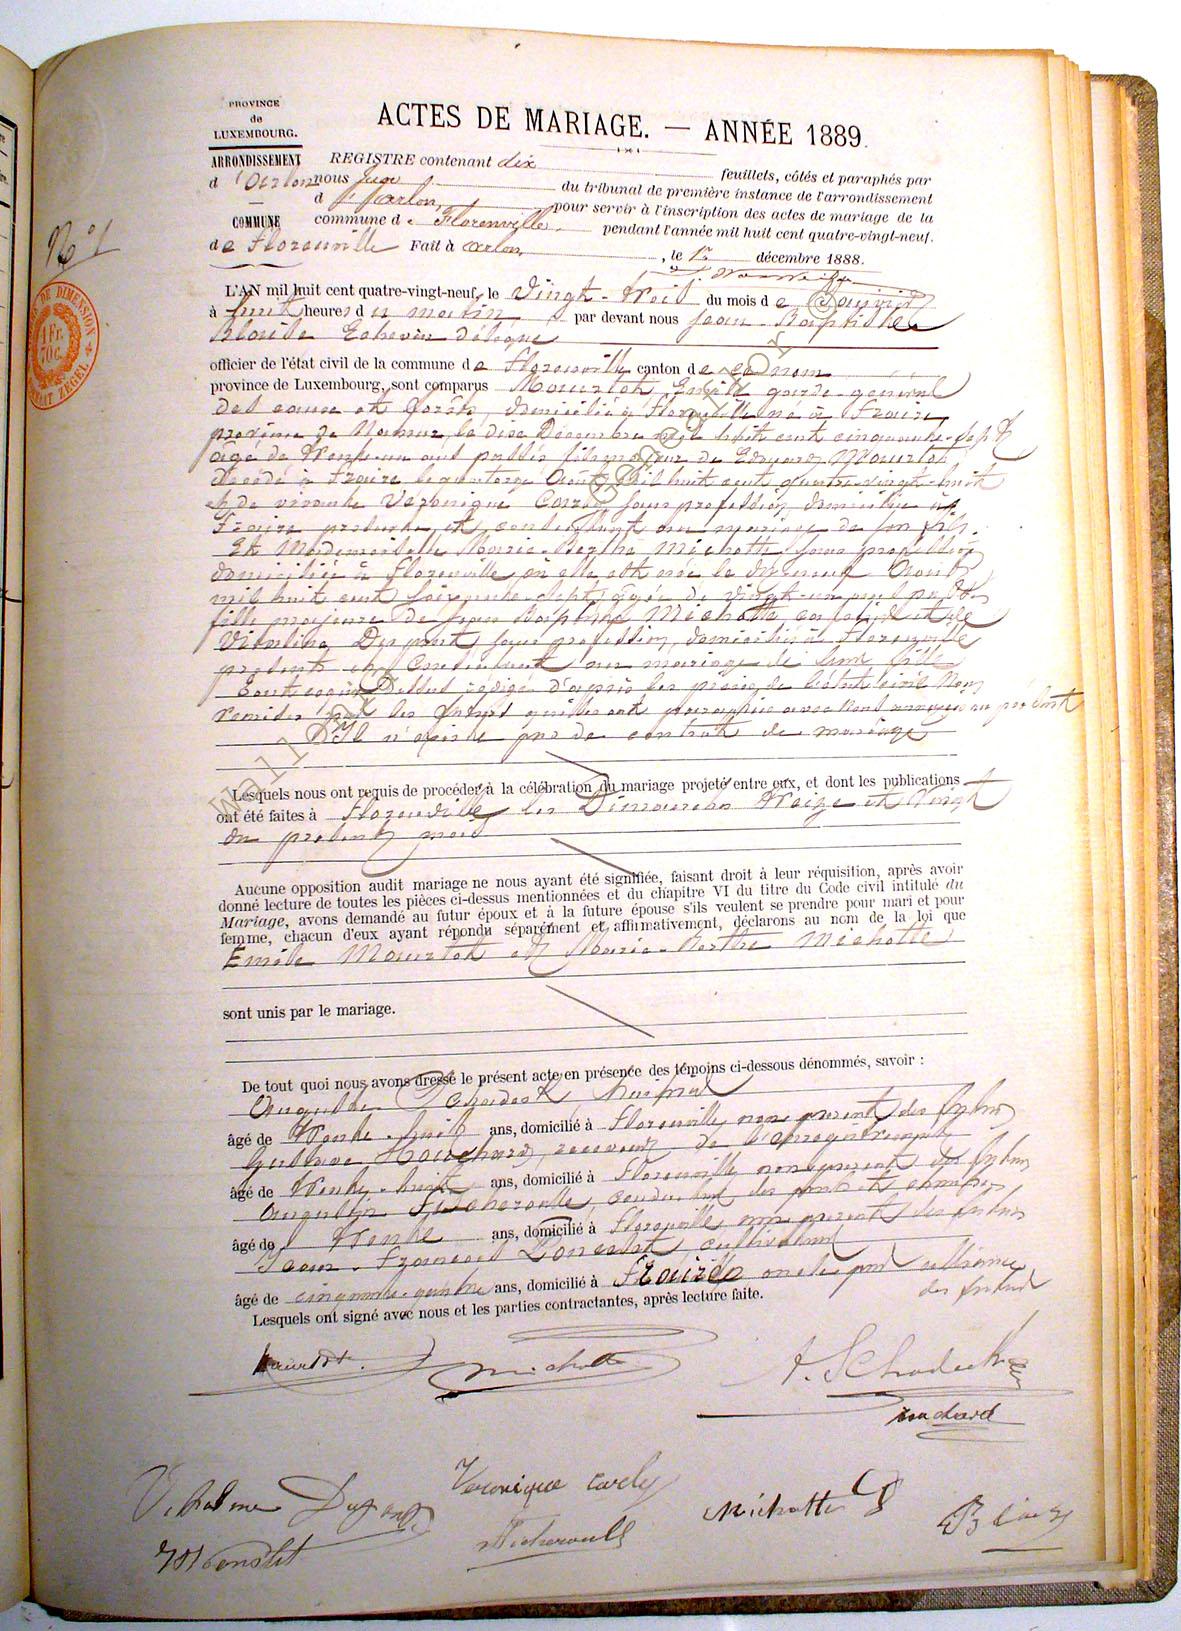 PROVINCE
de
LUXEMBOURG.
ACTES DE MARIAGE. — ANNÉE 1889.
ARRONDISSEMENT
d'Arlon
COMMUNE
de Florenville
N° 1
REGISTRE contenant dix feuillets, côtés et paraphés par
nous Juge du tribunal de première instance de l'arrondissement
d'Arlon, pour servir à l'inscription des actes de mariage de la
commune de Florenville pendant l'année mil huit cent quatre-vingt-neuf.
Fait à Arlon, le 1er décembre 1888.
DE DIMENSION
1 Fr.
70c.
ZEGEL
L'AN mil huit cent quatre-vingt-neuf, le vingt-trois du mois de Janvier
à huit heures du matin par devant nous Jean-Baptiste
Echevin délégué
officier de l'état civil de la commune de Florenville canton de ce nom
province de Luxembourg, sont comparus Mourtot Emile garde-général
des eaux et forêts, domicilié à Florenville né à Fraire
province de Namur le dix Décembre mil huit cent cinquante-sept
âgé de trente-un ans passés fils majeur de Edouard Mourtot
décédé à Fraire le quatorze Août mil huit cent quatre-vingt-huit
et de vivante Véronique sans profession domiciliée à
Fraire présente et consentant au mariage de son fils.
Et Mademoiselle Marie-Berthe Michotte sans profession
domiciliée à Florenville où elle est née le Août
mil huit cent soixante-sept âgée de vingt-un ans passés
fille majeure de Jean Baptiste Michotte et de
Dupont sans profession, domiciliés à Florenville
présents et consentant au mariage de leur fille
Tout ce que dessus rédigé d'après les pièces de l'état civil nous
remises par les futurs qu'ils ont paraphées avec nous annexées au présent
Il n'existe pas de contrat de mariage
Lesquels nous ont requis de procéder à la célébration du mariage projeté entre eux, et dont les publications
ont été faites à Florenville les Dimanches treize et vingt
du présent mois
Aucune opposition audit mariage ne nous ayant été signifiée, faisant droit à leur réquisition, après avoir
donné lecture de toutes les pièces ci-dessus mentionnées et du chapitre VI du titre du Code civil intitulé du
Mariage, avons demandé au futur époux et à la future épouse s'ils veulent se prendre pour mari et pour
femme, chacun d'eux ayant répondu séparément et affirmativement, déclarons au nom de la loi que
Emile Mourtot et Marie-Berthe Michotte
sont unis par le mariage.
De tout quoi nous avons dressé le présent acte en présence des témoins ci-dessous dénommés, savoir :
Auguste
âgé de trente-huit ans, domicilié à Florenville non parent des futurs
Gustave Houchard, receveur de l'enregistrement
âgé de trente-huit ans, domicilié à Florenville non parent des futurs
conducteur des ponts et chaussées
âgé de trente ans, domicilié à Florenville non parent des futurs
Jean-François cultivateur
âgé de cinquante-quatre ans, domicilié à Fraire oncle par alliance
des futurs
Lesquels ont signé avec nous et les parties contractantes, après lecture faite.
Mourtot. Michotte A. Schadeck
Houchard
Dupont Veronique Michotte